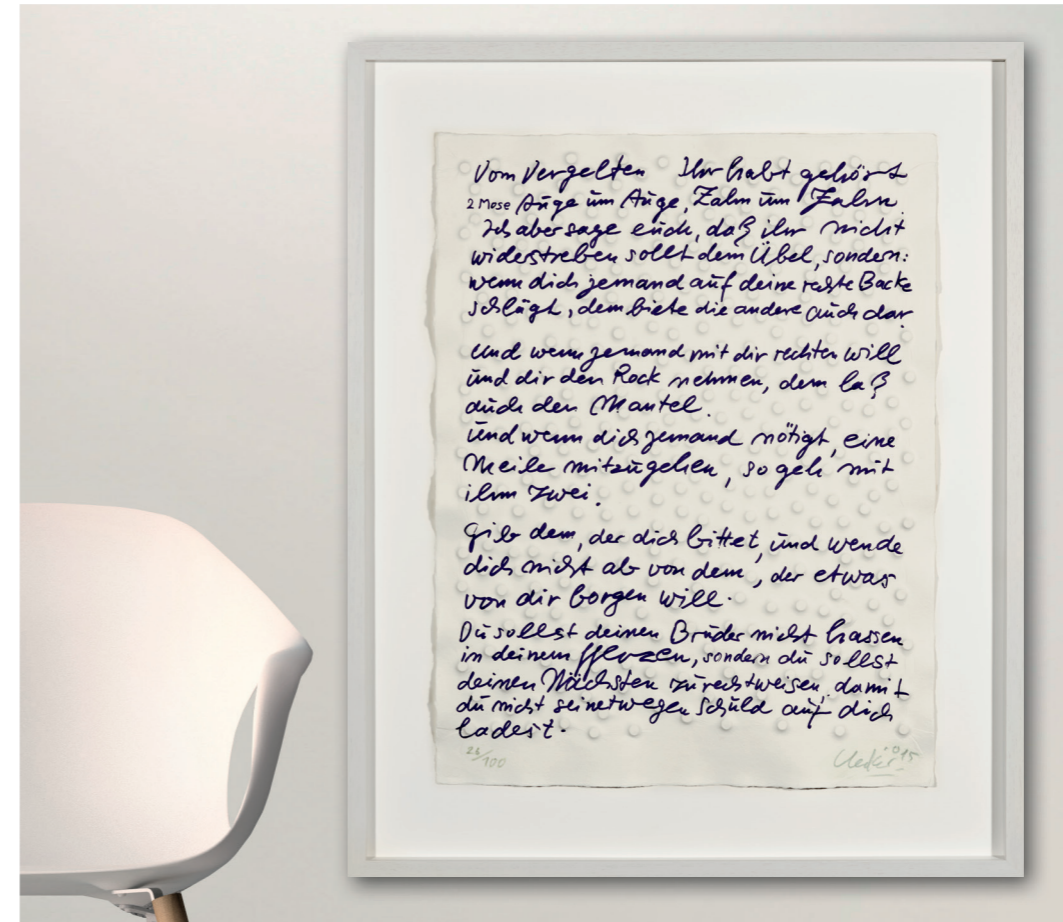 Vom Vergelten Ihr habt gehört
2 Mose Auge um Auge, Zahn um Zahn
Ich aber sage euch, daß ihr nicht
widerstreben sollt dem Übel, sondern:
wenn dich jemand auf deine rechte Backe
schlägt, dem biete die andere auch dar
Und wenn jemand mit dir rechten will
und dir den Rock nehmen, dem laß
auch den Mantel.
Und wenn dich jemand nötigt, eine
Meile mitzugehen, so geh mit
ihm zwei.
Gib dem, der dich bittet, und wende
dich nicht ab von dem, der etwas
von dir borgen will.
Du sollst deinen Bruder nicht hassen
in deinem Herzen, sondern du sollst
deinen Nächsten zurechtweisen, damit
du nicht seinetwegen Schuld auf dich
ladest.
26/100 Uecker '015